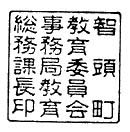 智頭町
教育委員会
事務局教育
総務課長印